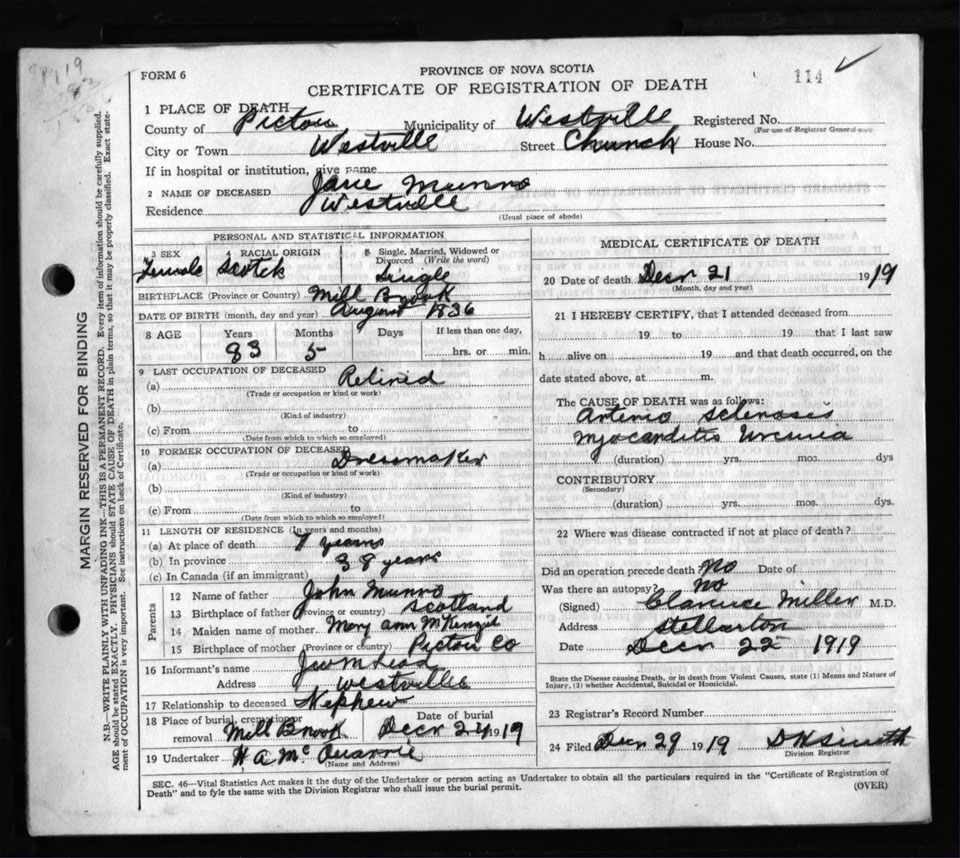 1919
83
1836
FORM 6
PROVINCE OF NOVA SCOTIA
CERTIFICATE OF REGISTRATION OF DEATH
114 ✓
1 PLACE OF DEATH
County of Pictou Municipality of Westville Registered No.
(For use of Registrar General only)
City or Town Westville Street Church House No.
If in hospital or institution, give name
2 NAME OF DECEASED Jane Munro
Residence Westville
(Usual place of abode)
PERSONAL AND STATISTICAL INFORMATION
3 SEX RACIAL ORIGIN 5 Single, Married, Widowed or Divorced (Write the word)
Female Scotch Single
BIRTHPLACE (Province or Country) Mill Brook
DATE OF BIRTH (month, day and year) August 1836
8 AGE Years Months Days If less than one day,
83 5 hrs. or min.
9 LAST OCCUPATION OF DECEASED
(a) Retired
(Trade or occupation or kind or work)
(b)
(Kind of industry)
(c) From to
(Date from which to which so employed)
10 FORMER OCCUPATION OF DECEASED
(a) Dressmaker
(Trade or occupation or kind of work)
(b)
(Kind of industry)
(c) From to
(Date from which to which so employed)
11 LENGTH OF RESIDENCE (In years and months)
(a) At place of death 7 years
(b) In province 38 years
(c) In Canada (if an immigrant)
Parents
12 Name of father John Munro
13 Birthplace of father (Province or country) Scotland
14 Maiden name of mother Mary Ann McKenzie
15 Birthplace of mother (Province or country) Pictou Co
16 Informant's name
Address Westville
17 Relationship to deceased Nephew
18 Place of burial, cremation or removal Mill Brook Date of burial Decr 24 1919
19 Undertaker H A McQuarrie
(Name and Address)
MEDICAL CERTIFICATE OF DEATH
20 Date of death Decr 21 1919
(Month, day and year)
21 I HEREBY CERTIFY, that I attended deceased from
19 to 19 that I last saw
h alive on 19 and that death occurred, on the
date stated above, at m.
The CAUSE OF DEATH was as follows:
Arterio Sclerosis
Myocarditis Uremia
(duration) yrs. mos. dys
CONTRIBUTORY
(Secondary)
(duration) yrs. mos. dys.
22 Where was disease contracted if not at place of death?
Did an operation precede death? No Date of
Was there an autopsy? No
(Signed) Clarence Miller M.D.
Address Stellarton
Date Decr 22 1919
State the Disease causing Death, or in death from Violent Causes, state (1) Means and Nature of
Injury, (2) whether Accidental, Suicidal or Homicidal.
23 Registrar's Record Number
24 Filed Decr 29 1919 D H Smith
Division Registrar
SEC. 46—Vital Statistics Act makes it the duty of the Undertaker or person acting as Undertaker to obtain all the particulars required in the "Certificate of Registration of
Death" and to fyle the same with the Division Registrar who shall issue the burial permit.
(OVER)
MARGIN RESERVED FOR BINDING
N.B.—WRITE PLAINLY WITH UNFADING INK—THIS IS A PERMANENT RECORD. Every item of information should be carefully supplied.
AGE should be stated EXACTLY. PHYSICIANS should STATE CAUSE OF DEATH in plain terms, so that it may be properly classified. Exact state-
ment of OCCUPATION is very important. See instructions on back of Certificate.